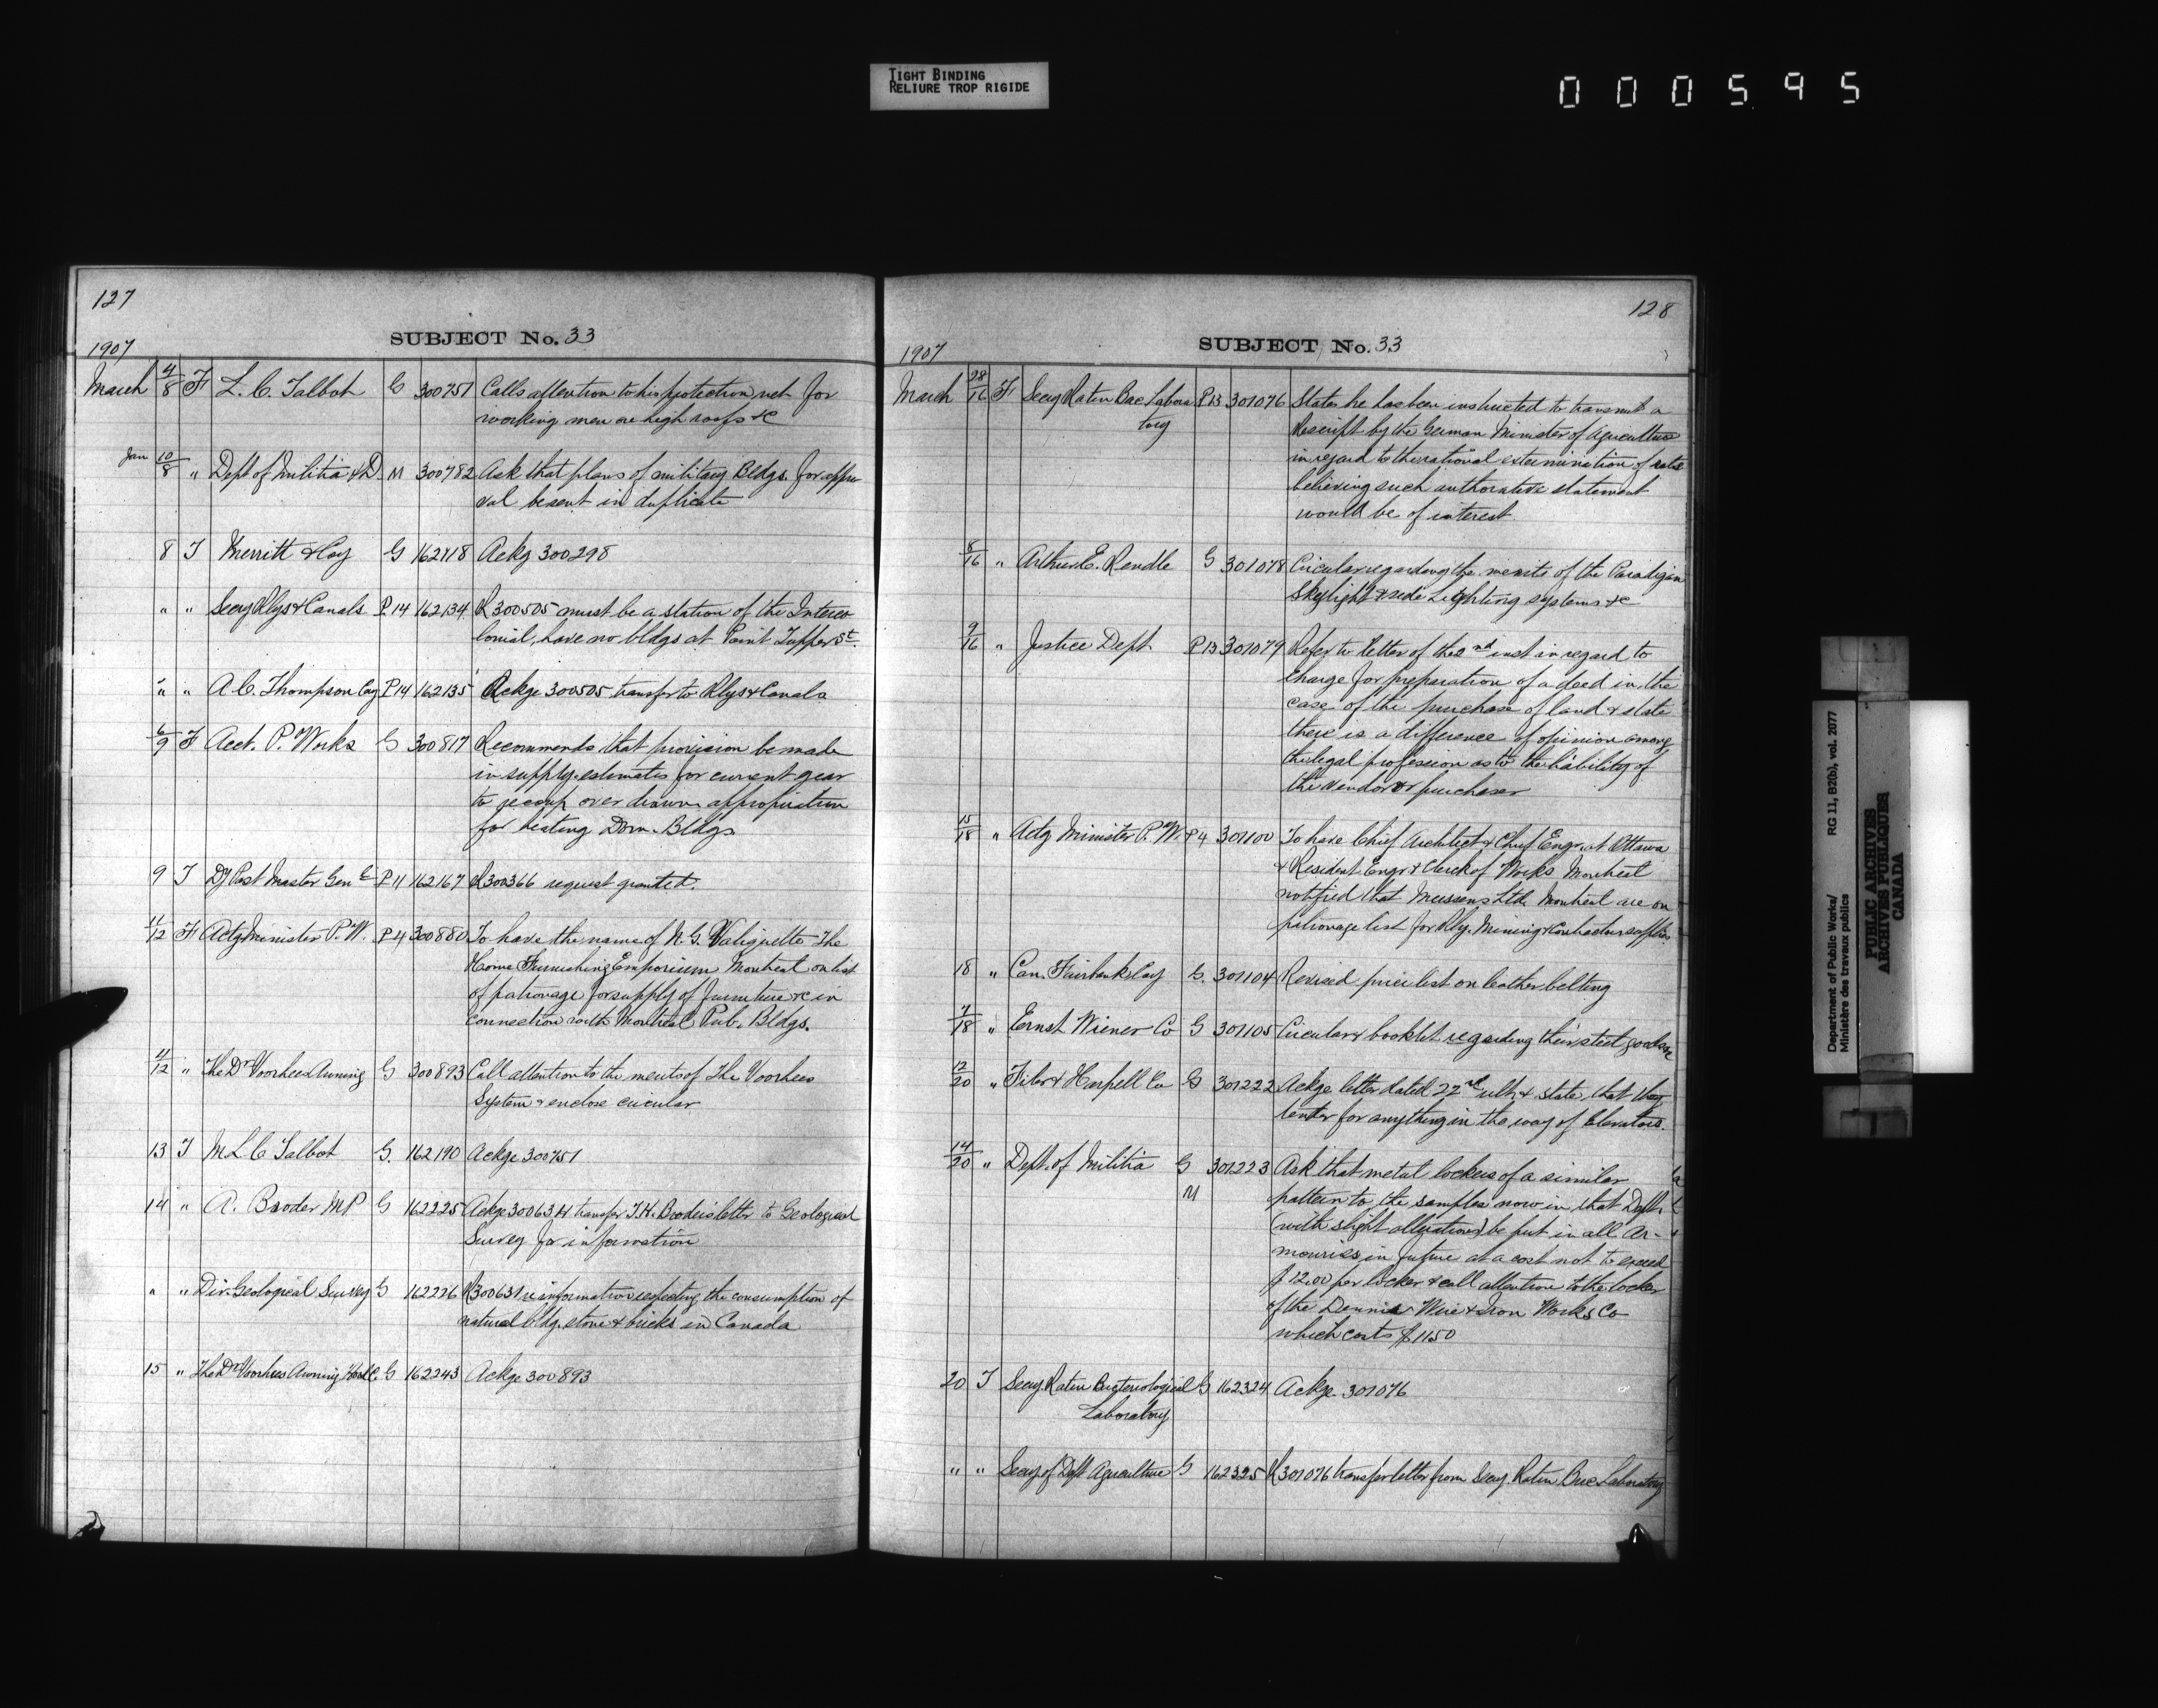 TIGHT BINDING
RELIURE TROP RIGIDE
000595
127
SUBJECT No. 33
1907
March 4/8 F L. C. Talbot G 300751 Calls attention to his protection net for
working men on high roofs &c
Jan 10/8 " Dept of Militia & D. M 300782 Ask that plans of military Bldgs. for appro
val be sent in duplicate
8 T Merritt & Coy G 162118 Ackg 300298
" " Secy Rlys & Canals P.14 162134 R 300505 must be a station of the Interco
lonial, have no bldgs at Point Tupper St.
" " A. C. Thompson Coy P14 162135 Ackge 300505 transfer to Rlys & Canals
6/9 F Acct. P. Works G 300817 Recommends that provision be made
in supply estimates for current year
to recoup over drawn appropriation
for heating Dom. Bldgs
9 T Dy Post Master Genl P11 162167 R 300366 request granted.
11/12 F Actg Minister P.W. P4 300880 To have the name of N. G. Valiquette The
Home Furnishing Emporium Montreal on list
of patronage for supply of furniture &c in
connection with Montreal Pub. Bldgs.
11/12 " The Dr Voorhees Awning G 300893 Call attention to the merits of The Voorhees
System & enclose circular
13 T M L C Talbot G. 162190 Ackge 300751
14 " A. Broder MP G 162225 Ackge 300634 transfer letter to Geological
Survey for information
" " Dir. Geological Survey G 162226 R 300634 re information respecting the consumption of
natural bldg. stone & bricks in Canada
15 " The Dr Voorhees Awning G 162243 Ackge 300893
128
SUBJECT No. 33
1907
March 28/16 F Secy Ratin Bac Labora P13 301076 States he has been instructed to transmit a
tory
Rescript by the German Minister of Agriculture
in regard to the rational extermination of rats
believing such authorative statement
would be of interest
8/16 " Arthur E. Rendle G 301078 Circular regarding the merits of the Paradigm
Skylight & side Lighting systems &c
9/16 " Justice Dept P13 301079 Refer to letter of the 2nd inst in regard to
charge for preparation of a deed in the
case of the purchase of land & state
there is a difference of opinion among
the legal profession as to the liability of
the vendor or purchaser
15/18 " Actg Minister P.W. P4 301100 To have Chief Architect & Chief Engr. at Ottawa
& Resident Engr. & Clerk of Works Montreal
notified that Mussens Ltd. Montreal are on
patronage list for Rly. Mining & Contractors supplies
18 " Can. Fairbanks Coy G. 301104 Revised price list on leather belting
7/18 " Ernst Wiener Co G 301105 Circular & booklet regarding their steel goods &c
12/20 " & Harpell Co G 301222 Ackge letter dated 22nd ult. & state that they
tender for anything in the way of Elevators.
14/20 " Dept. of Militia G 301223 Ask that metal lockers of a similar
M
pattern to the samples now in that Dept.
(with slight alterations) be put in all Ar-
mouries in future at a cost not to exceed
$12.00 per locker & call attention to the locker
of the Dennis Wire & Iron Works Co
which costs $11.50
20 T Secy Ratin Bacteriological G 162324 Ackge 301076
Laboratory
" " Secy of Dept Agriculture G 162325 R 301076 transfer letter from Secy. Ratin Bac Laboratory
Department of Public Works/
Ministère des travaux publics
RG 11, B2(b), vol. 2077
PUBLIC ARCHIVES
ARCHIVES PUBLIQUES
CANADA